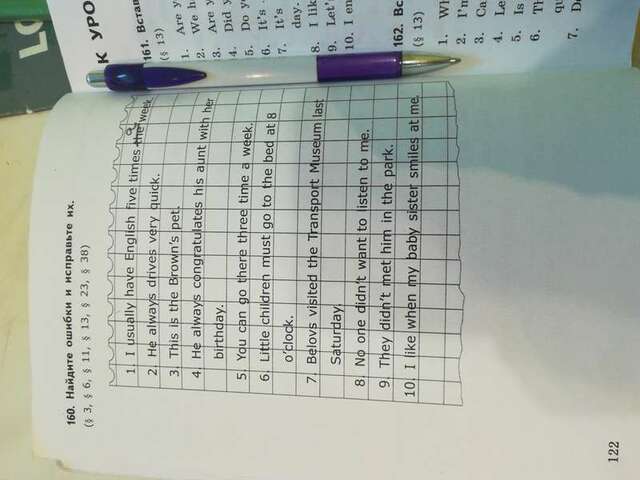 К УРО
161. Встав
(§ 13)
1. Are y
2. We h
3. Are y
4. Did y
5. Do yo
6. It's
7. It's
day.
8. I lik
9. Let'
10. I en
162. Вс
(§ 13)
1. Wh
2. I'm
3. Ca
4. Le
5. Is
6. Th
qu
7. D
160. Найдите ошибки и исправьте их.
(§ 3, § 6, § 11, § 13, § 23, § 38)
a
1. I usually have English five times the week.
2. He always drives very quick.
3. This is the Brown's pet.
4. He always congratulates his aunt with her
birthday.
5. You can go there three time a week.
6. Little children must go to the bed at 8
o'clock.
7. Belovs visited the Transport Museum last
Saturday.
8. No one didn't want to listen to me.
9. They didn't met him in the park.
10. I like when my baby sister smiles at me.
122